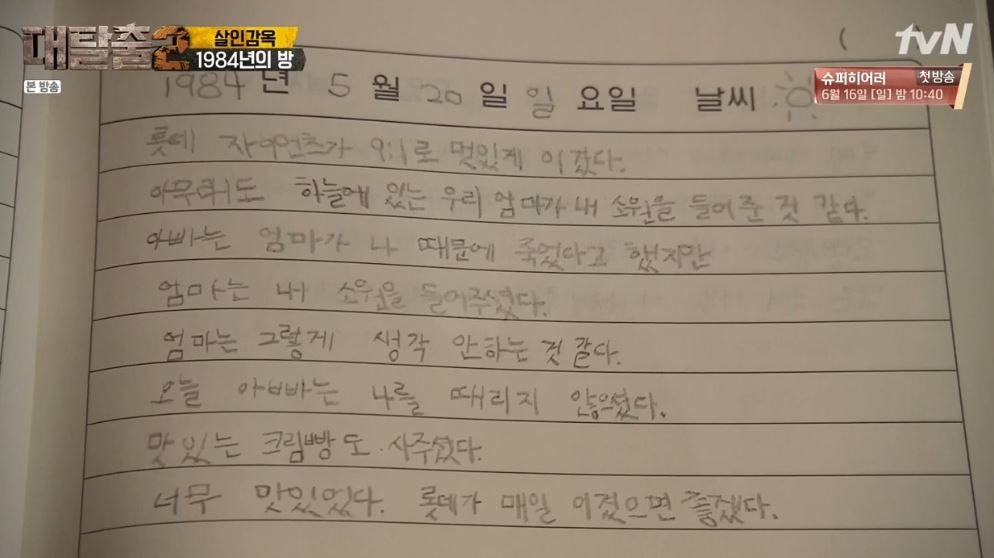 대탈출2
살인감옥
1984년의 방
본 방송
tvN
슈퍼히어러 첫방송
6월 16일 [일] 밤 10:40
(
1984년 5월 20일 일요일 날씨
롯데 자이언츠가 9:1로 멋있게 이겼다.
아무래도 하늘에 있는 우리 엄마가 내 소원을 들어준 것 같다.
아빠는 엄마가 나 때문에 죽었다고 했지만
엄마는 내 소원을 들어주셨다.
엄마는 그렇게 생각 안하는 것 같다.
오늘 아빠는 나를 때리지 않으셨다.
맛있는 크림빵도 사주셨다.
너무 맛있었다. 롯데가 매일 이겼으면 좋겠다.